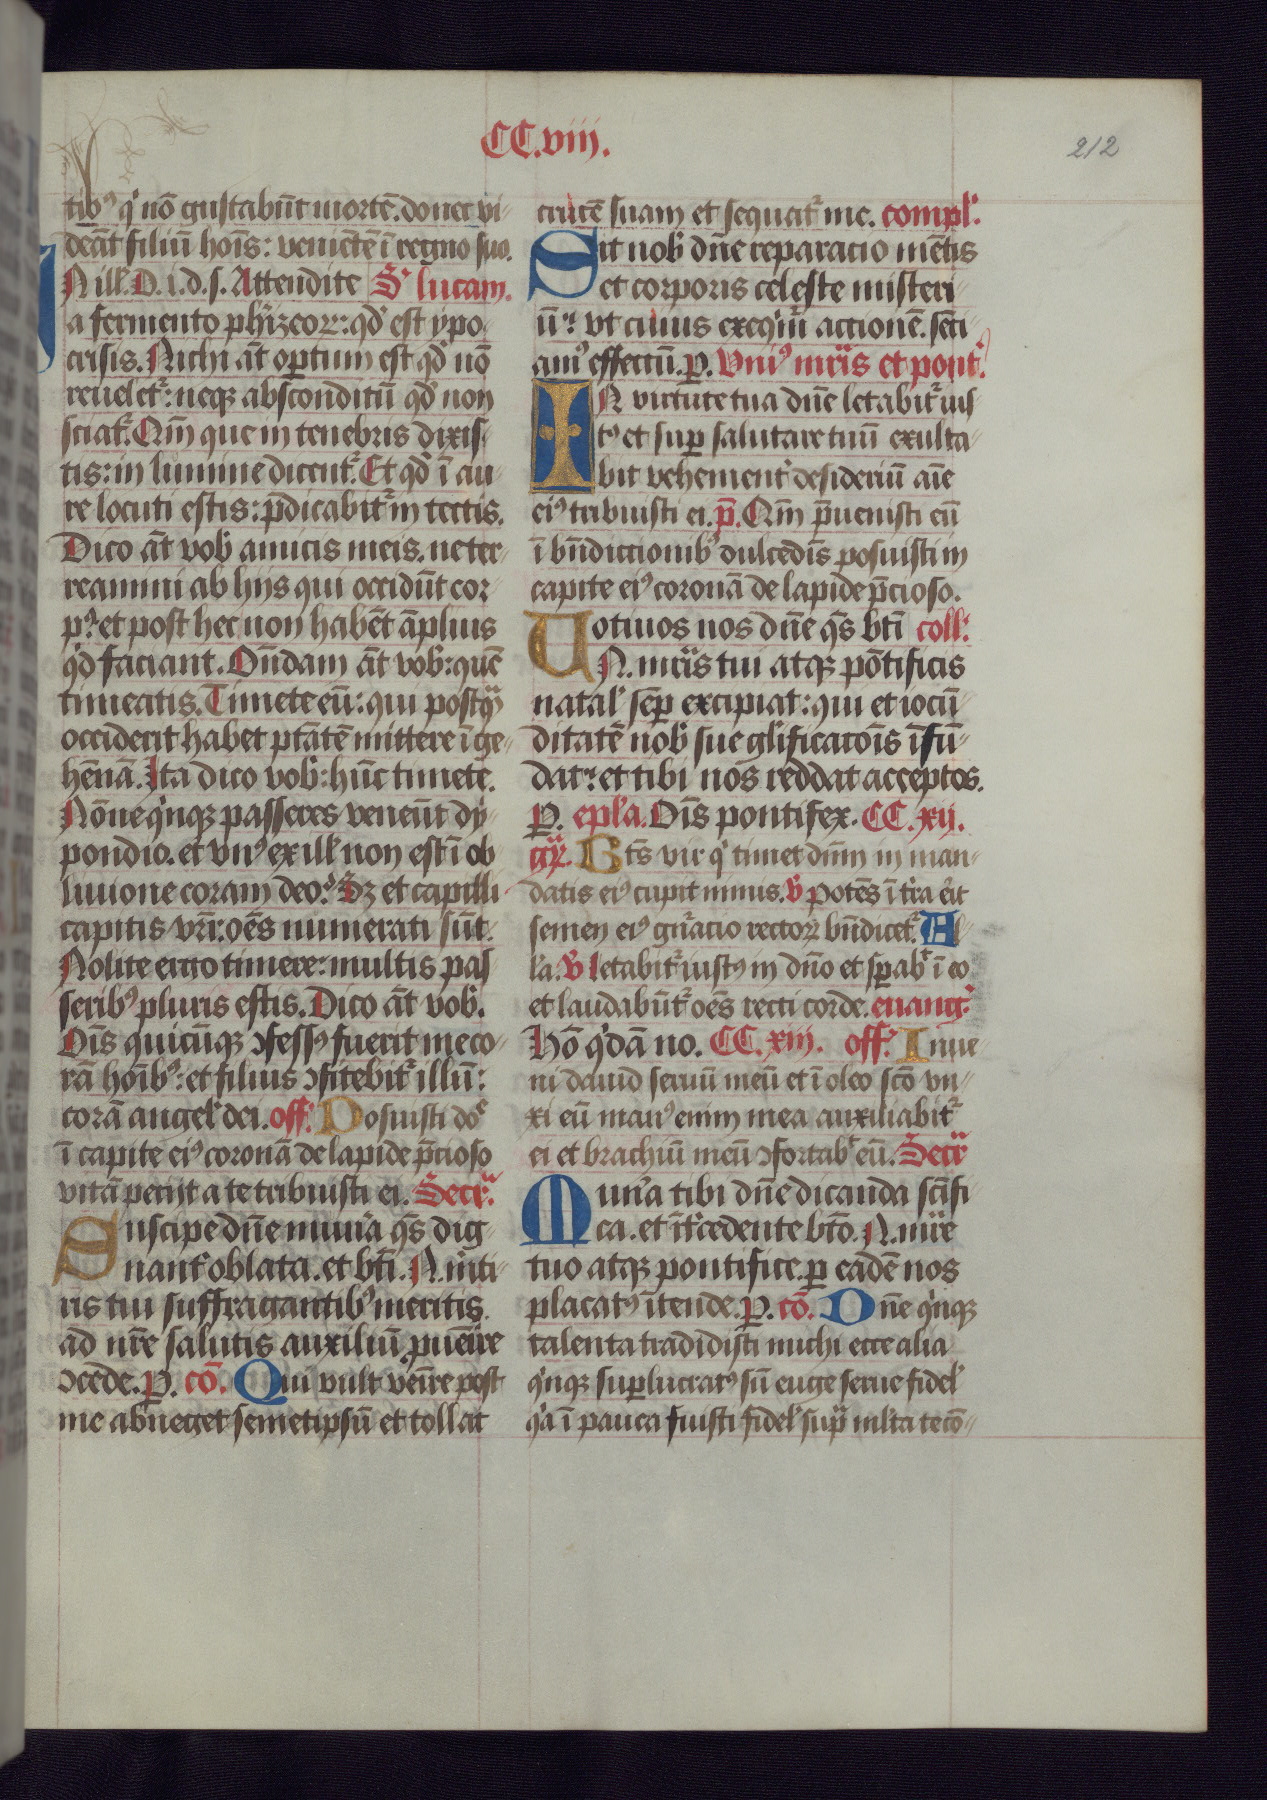 CC.viii.
212
tibꝰ q̇ nō gustabūt mortē. donec vi-
deāt filiū hoīs: veniētē ī regno suo.
N ill. D. i. d. s. Attendite S. lucam.
a fermento phīzeoꝝ: qđ est ypo-
crisis. Nichi āt optum est qđ nō
reueletᷣ: neqꝫ absconditū qđ non
sciatᷣ. Qm̄ que in tenebris dixis-
tis: in lumine dicentᷣ. Et qđ ī au-
re locuti estis: p̄dicabitᷣ in tectis.
Dico āt vob̄ amicis meis. ne ter-
reamini ab hijs qui occidūt cor-
pꝰ: et post hec non habēt āplius
qđ faciant. On̄dam āt vob̄: quē
timeatis. Timete eū: qui postqͣ
occiderit habet ptātē mittere ī ge-
hēnā. Ita dico vob̄: hūc timete.
Nōne q̇nqꝫ passeres veneūt dy-
pondio. et vnꝰ ex ill̄ non est ī ob
liuione coram deo? Sꝫ et capilli
capitis vr̄i: oēs numerati sūt.
Nolite ergo timere: multis pas-
seribꝰ pluris estis. Dico āt vob̄.
Oīs quicūqꝫ ꝯfessꝰ fuerit me co-
rā hoībꝰ: et filius ꝯfitebitᷣ illū:
corā angel̄ dei. off. Posuisti dōe
ī capite eiꝰ coronā de lapide p̄cioso
vitā petijt a te tribuisti ei. Secrͣ.
Suscipe dn̄e mun̄a qs̄ dig-
nant̄ oblata. et bt̄i. N. m̄ti-
ris tui suffragantibꝰ meritis
ad nr̄e salutis auxiliū puēire
ꝯcede. P. cō. Qui vult veīre post
me abneget semetipsū et tollat
crucē suam et sequatᷣ me. compl̄.
Sit nob̄ dn̄e reparacio mētis
et corporis celeste misteri-
ū: vt cuius exeq̇m̄ actionē. sēti-
amꝰ effectū. P. Vniꝰ mr̄is et pont.
IN virtute tua dn̄e letabitᷣ ius-
tꝰ et sup salutare tuū exulta-
bit vehementᷣ desideriū aīe
eiꝰ tribuisti ei. p̄. Qm̄ p̄uenisti eū
ī bn̄dictionibꝰ dulcedīs posuisti in
capite eiꝰ coronā de lapide p̄cioso.
Uotiuos nos dn̄e qs̄ bt̄i coll.
N. mr̄is tui atqꝫ pōtificis
natal̄ sep̄ excipiat: qui et iocū-
ditatē nob̄ sue glificatoīs īfū-
dat: et tibi nos reddat acceptos.
P. epl̄a. Oīs pontifex. CC. xij.
gr̄. Bt̄s vir q̇ timet dn̄m in man-
datis eiꝰ cupit nimis. v̄ Potēs ī t̄ra erit
semen eiꝰ gn̄acio rectoꝝ bn̄dicetᷣ. Al-
la. v̄ letabitᷣ iustꝰ in dn̄o et sp̄abᷣ ī eo
et laudabūtᷣ oēs recti corde. euang.
Hō q̇dā no. CC. xiij. off. Inue-
ni dauid seruū meū et ī oleo scō vn-
xi eū manꝰ enim mea auxiliabitᷣ
ei et brachiū meū ꝯfortabᷣ eū. Secrͣ
Mun̄a tibi dn̄e dicanda scīfi-
ca. et īt̄cedente bt̄o. N. mr̄e
tuo atqꝫ pontifice. p eadē nos
placatꝰ ītende. P. cō. Dn̄e q̇nqꝫ
talenta tradidisti michi ecce alia
q̇nqꝫ suplucratꝰ sū euge serue fidel̄
q̇a ī pauca fuisti fidel̄ supͣ mlta te cō-